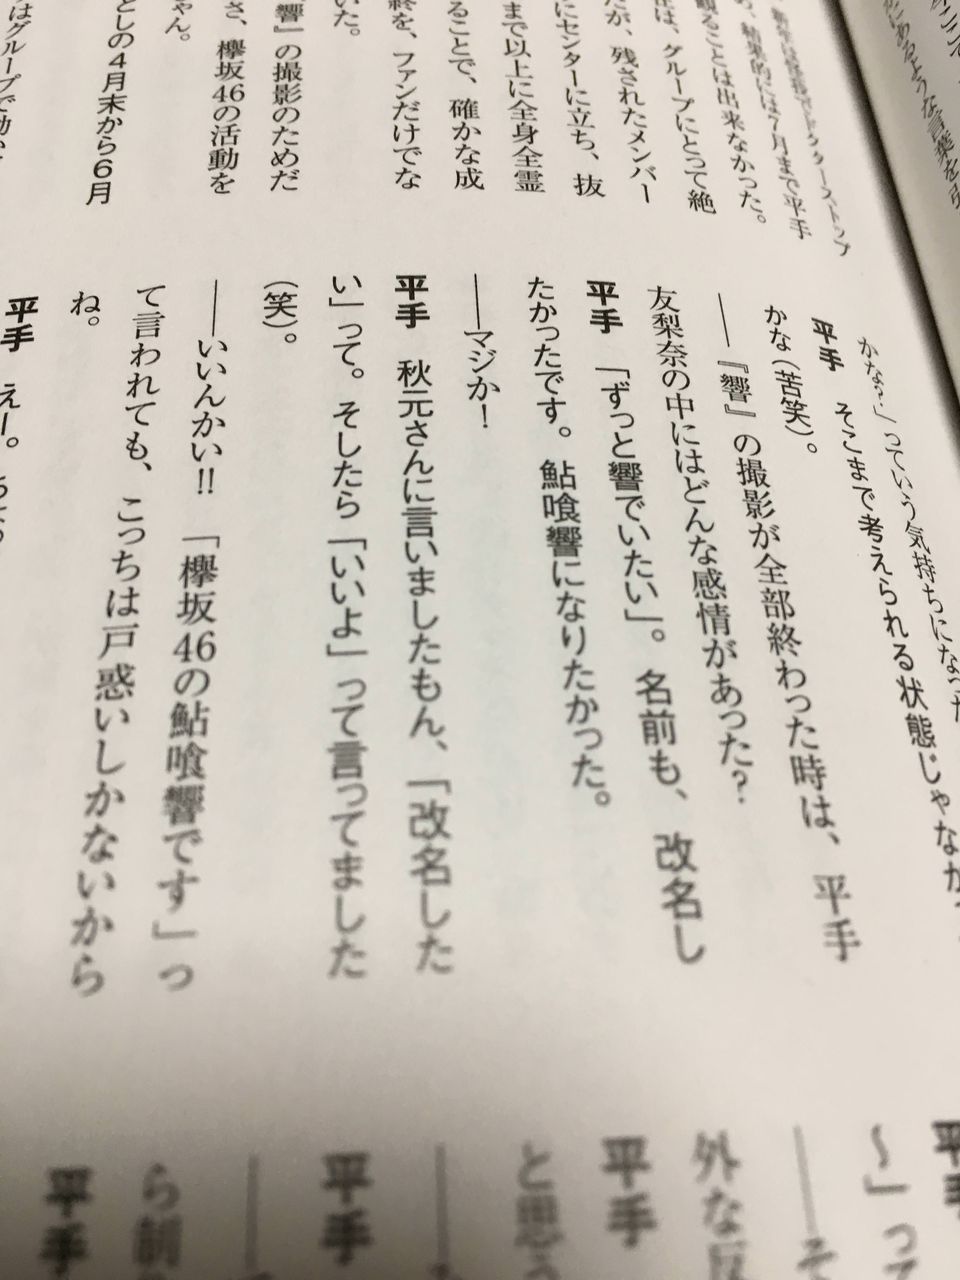 にあるような言葉を
新年は怪我でドクターストップ
結果的には7月まで平手
観ることは出来なかった。
は、グループにとって絶
たが、残されたメンバー
にセンターに立ち、抜
まで以上に全身全霊
ることで、確かな成
を、ファンだけでな
いた。
響』の撮影のためだ
さ、欅坂46の活動を
ゃん。
としの4月末から6月
はグループで動い
かな?」っていう気持ちになった
平手　そこまで考えられる状態じゃなか
かな(苦笑)。
――『響』の撮影が全部終わった時は、平手
友梨奈の中にはどんな感情があった?
平手　「ずっと響でいたい」。名前も、改名し
たかったです。鮎喰響になりたかった。
――マジか!
平手　秋元さんに言いましたもん、「改名した
い」って。そしたら「いいよ」って言ってました
(笑)。
――いいんかい!!　「欅坂46の鮎喰響です」っ
て言われても、こっちは戸惑いしかないから
ね。
平手　えー。
平手
〜」って
――そ
外な反
平手
と思う
――
平手
――
ら制
平手